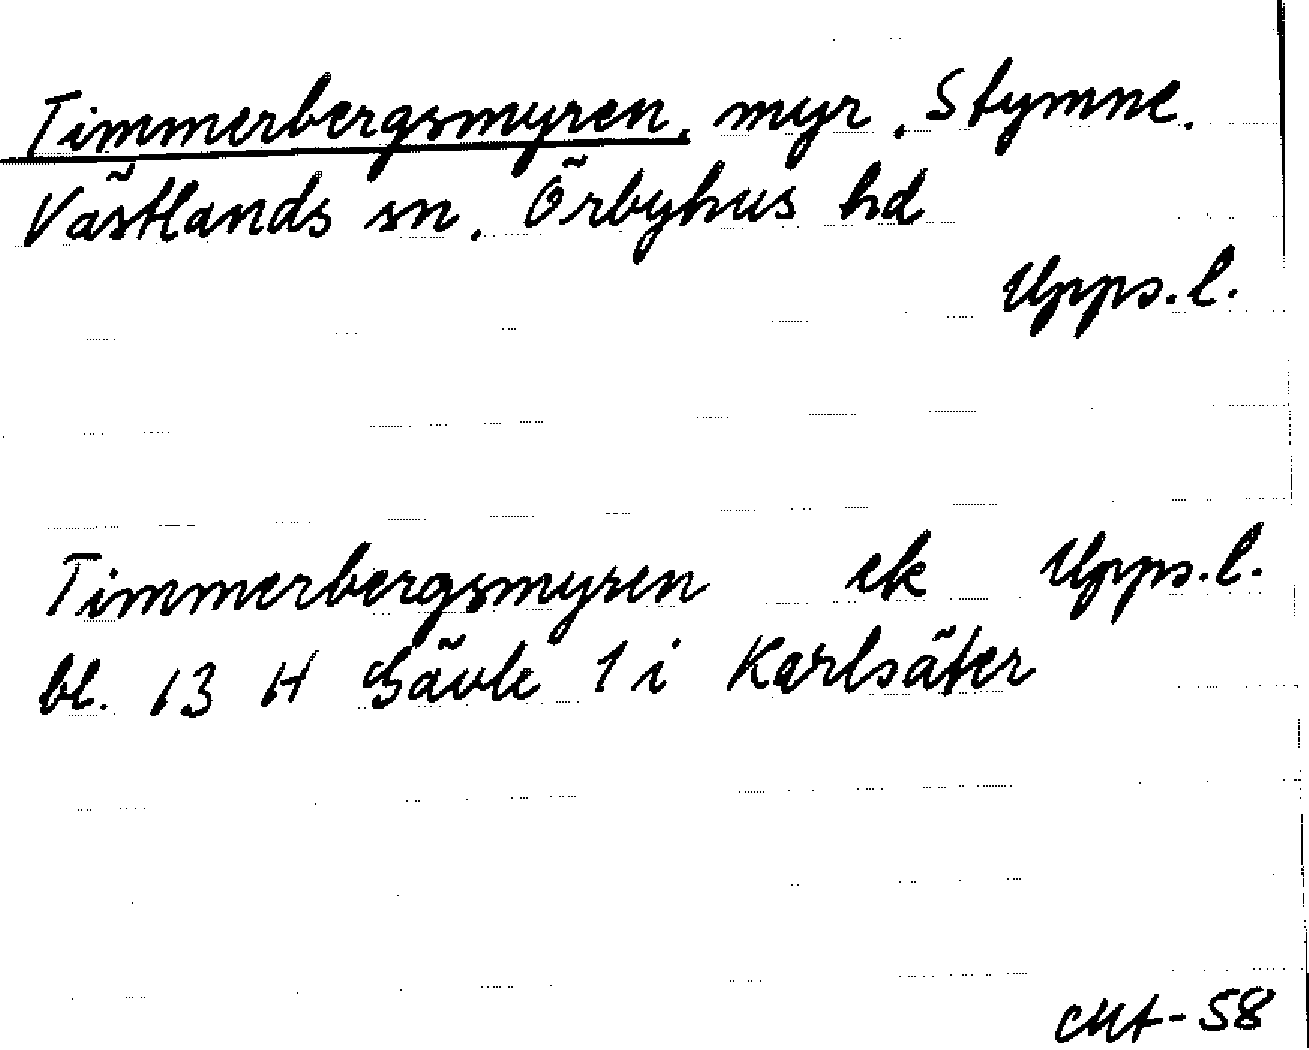 Timmerbergsmyren, myr, Stymne.
Västlands sn. Örbyhus hd
Upps.l.
Timmerbergsmyren ek Upps.l.
bl. 13 H Gävle 1 i Karlsäter
-58